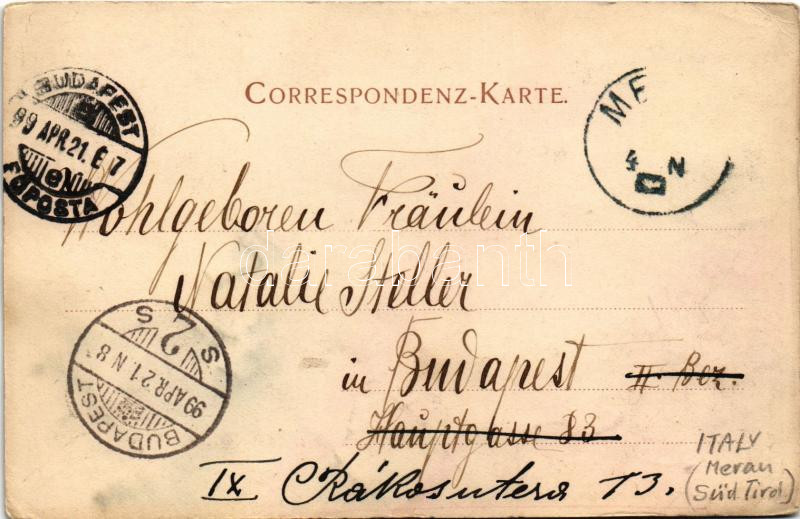 BUDAPEST
99 APR. 21. E 7
FŐPOSTA
CORRESPONDENZ-KARTE.
ME
4 N
Wohlgeboren Fräulein
Natalie Steller
darabanth
in Budapest II. Bez.
Hauptgasse 83
IX Rákosutera 13.
S 2 S
99 APR. 21. N 8
BUDAPEST
ITALY
(Meran
Süd Tirol)